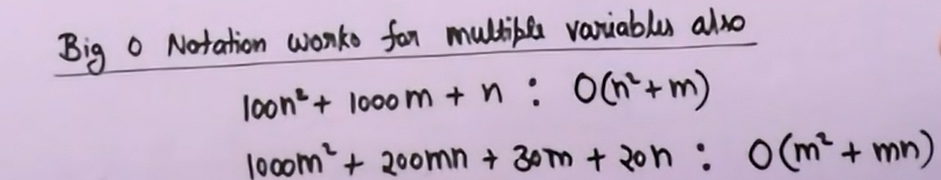 Big O Notation works for multiple variables also
100n² + 1000m + n : O(n²+m)
1000m² + 200mn + 30m + 20n : O(m² + mn)